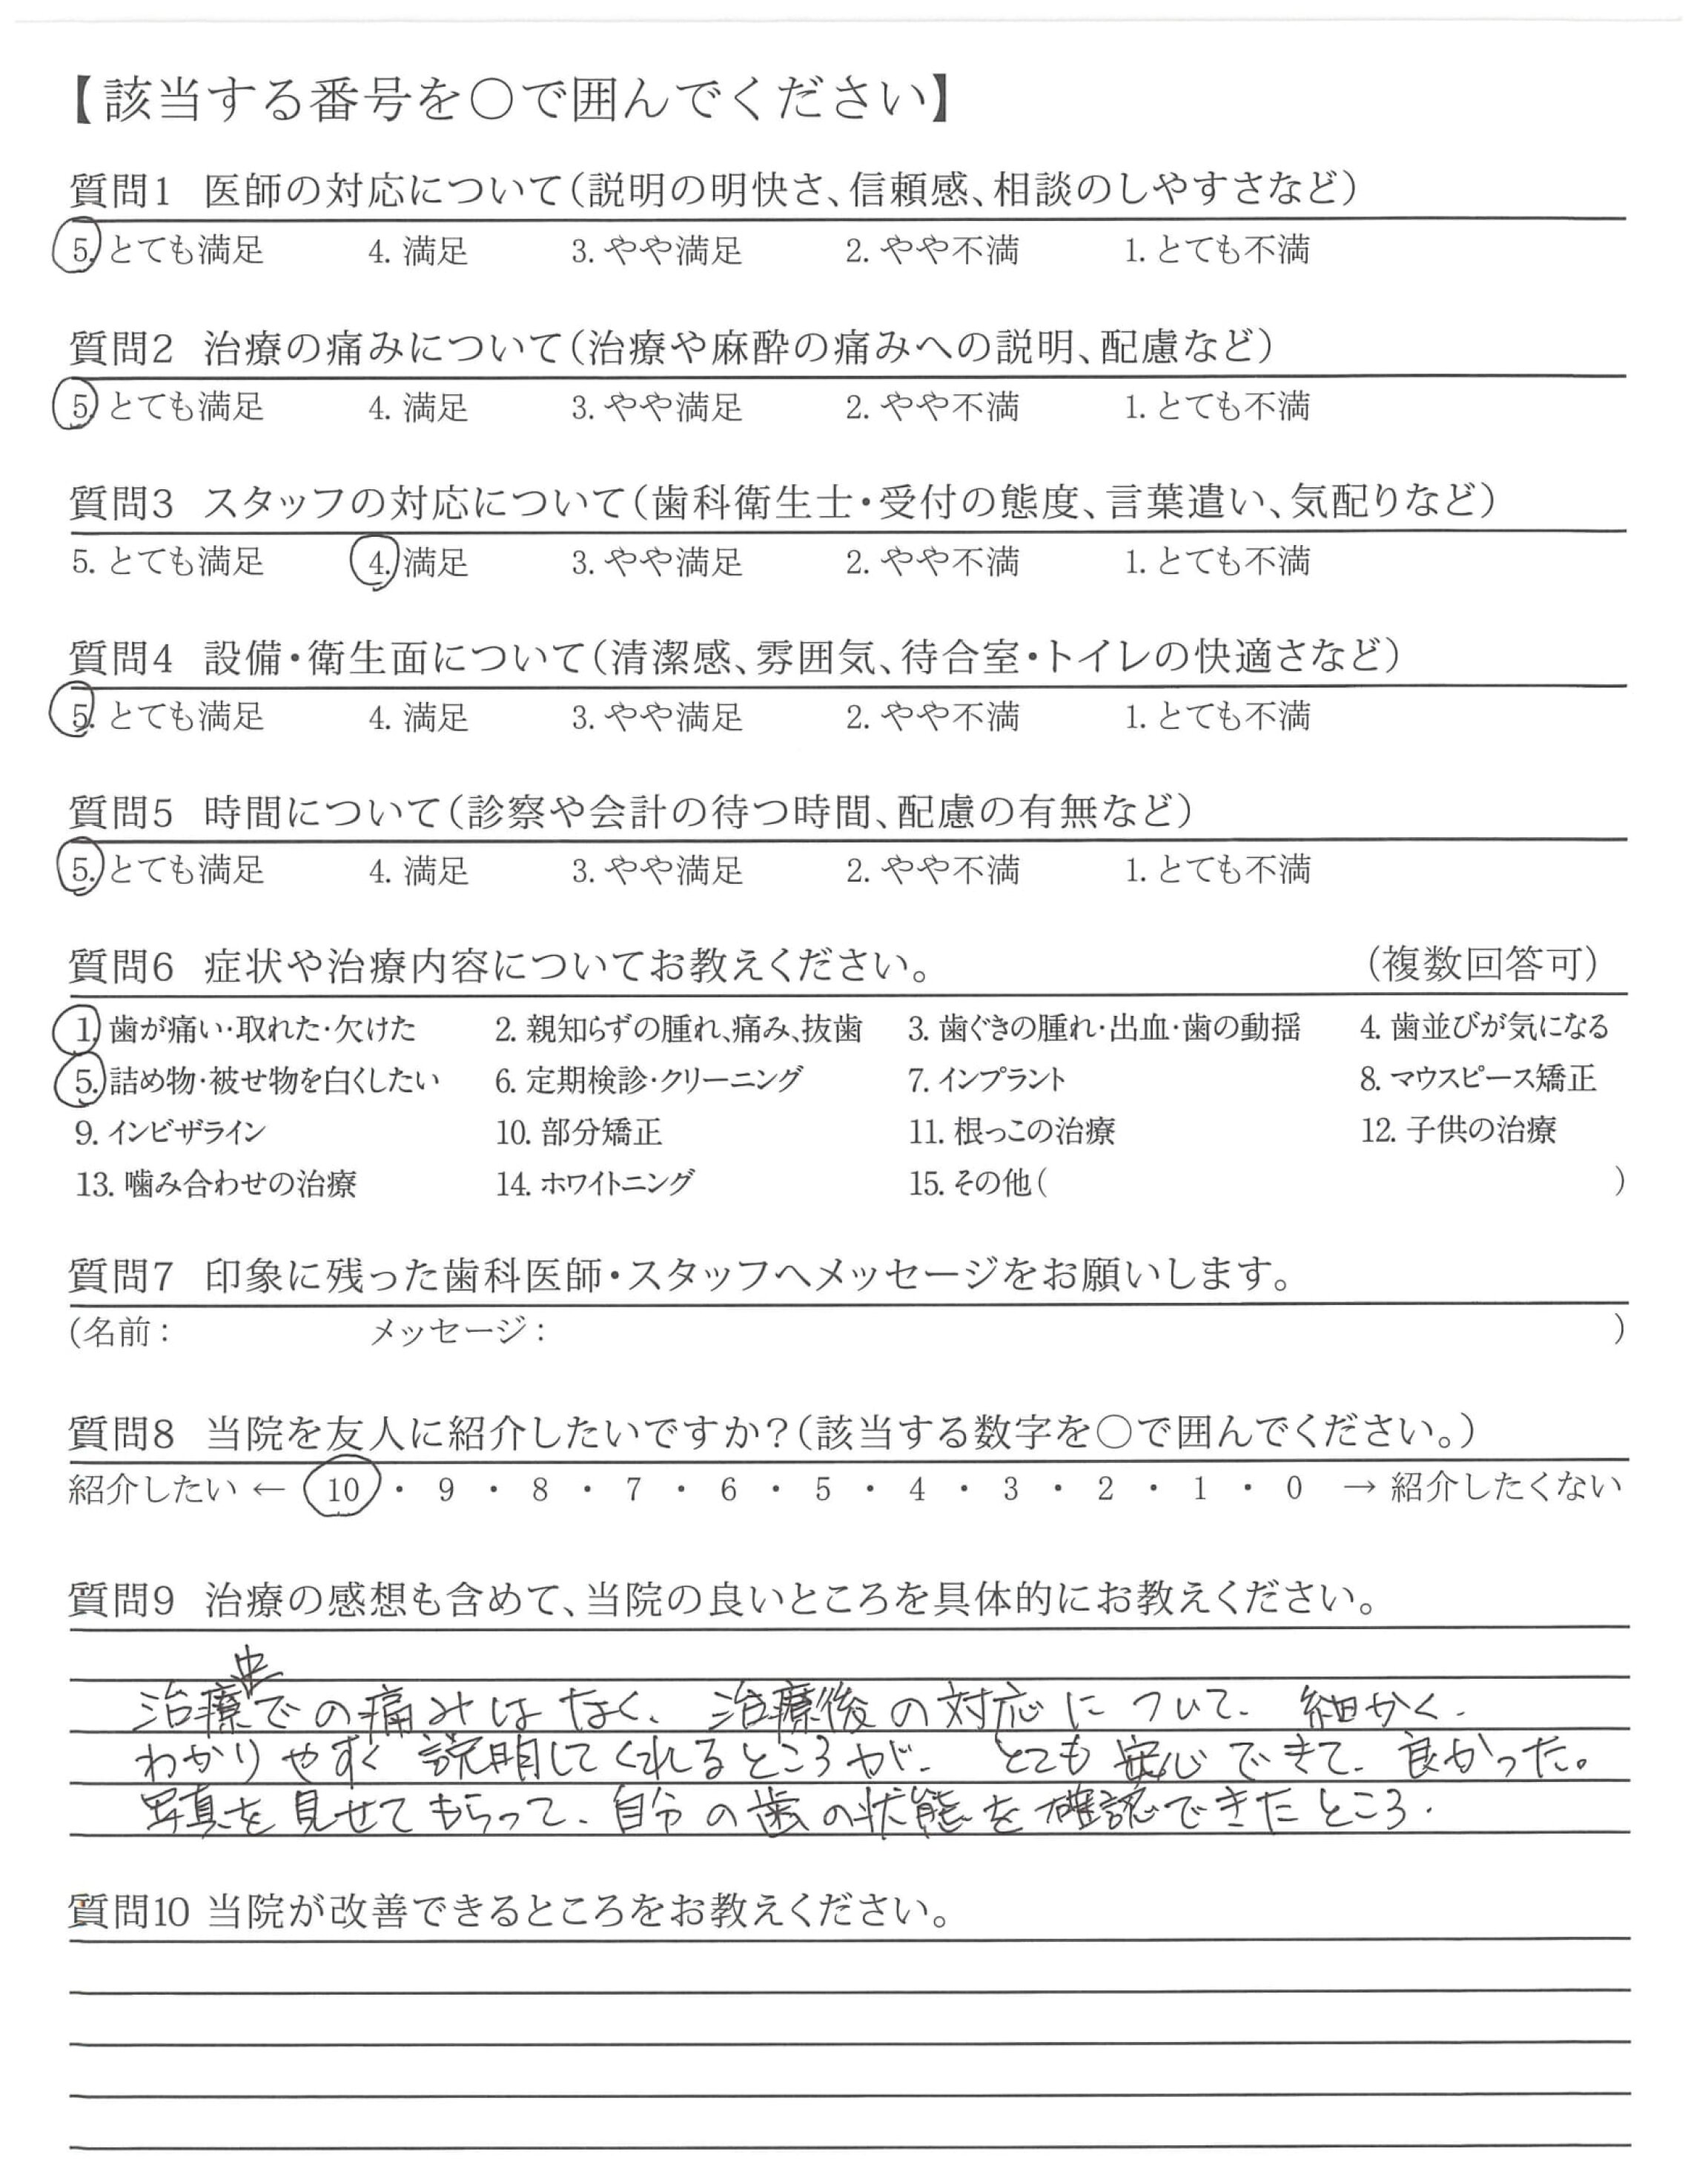 【該当する番号を○で囲んでください】
質問1 医師の対応について(説明の明快さ、信頼感、相談のしやすさなど)
5. とても満足 4. 満足 3. やや満足 2. やや不満 1. とても不満
質問2 治療の痛みについて(治療や麻酔の痛みへの説明、配慮など)
5. とても満足 4. 満足 3. やや満足 2. やや不満 1. とても不満
質問3 スタッフの対応について(歯科衛生士・受付の態度、言葉遣い、気配りなど)
5. とても満足 4. 満足 3. やや満足 2. やや不満 1. とても不満
質問4 設備・衛生面について(清潔感、雰囲気、待合室・トイレの快適さなど)
5. とても満足 4. 満足 3. やや満足 2. やや不満 1. とても不満
質問5 時間について(診察や会計の待つ時間、配慮の有無など)
5. とても満足 4. 満足 3. やや満足 2. やや不満 1. とても不満
質問6 症状や治療内容についてお教えください。 (複数回答可)
1. 歯が痛い・取れた・欠けた 2. 親知らずの腫れ、痛み、抜歯 3. 歯ぐきの腫れ・出血・歯の動揺 4. 歯並びが気になる
5. 詰め物・被せ物を白くしたい 6. 定期検診・クリーニング 7. インプラント 8. マウスピース矯正
9. インビザライン 10. 部分矯正 11. 根っこの治療 12. 子供の治療
13. 噛み合わせの治療 14. ホワイトニング 15. その他( )
質問7 印象に残った歯科医師・スタッフへメッセージをお願いします。
(名前: メッセージ: )
質問8 当院を友人に紹介したいですか?(該当する数字を○で囲んでください。)
紹介したい ← 10 ・ 9 ・ 8 ・ 7 ・ 6 ・ 5 ・ 4 ・ 3 ・ 2 ・ 1 ・ 0 → 紹介したくない
質問9 治療の感想も含めて、当院の良いところを具体的にお教えください。
治療中での痛みはなく、治療後の対応について、細かく、
わかりやすく説明してくれるところが、とても安心できて、良かった。
写真を見せてもらって、自分の歯の状態を確認できたところ.
質問10 当院が改善できるところをお教えください。